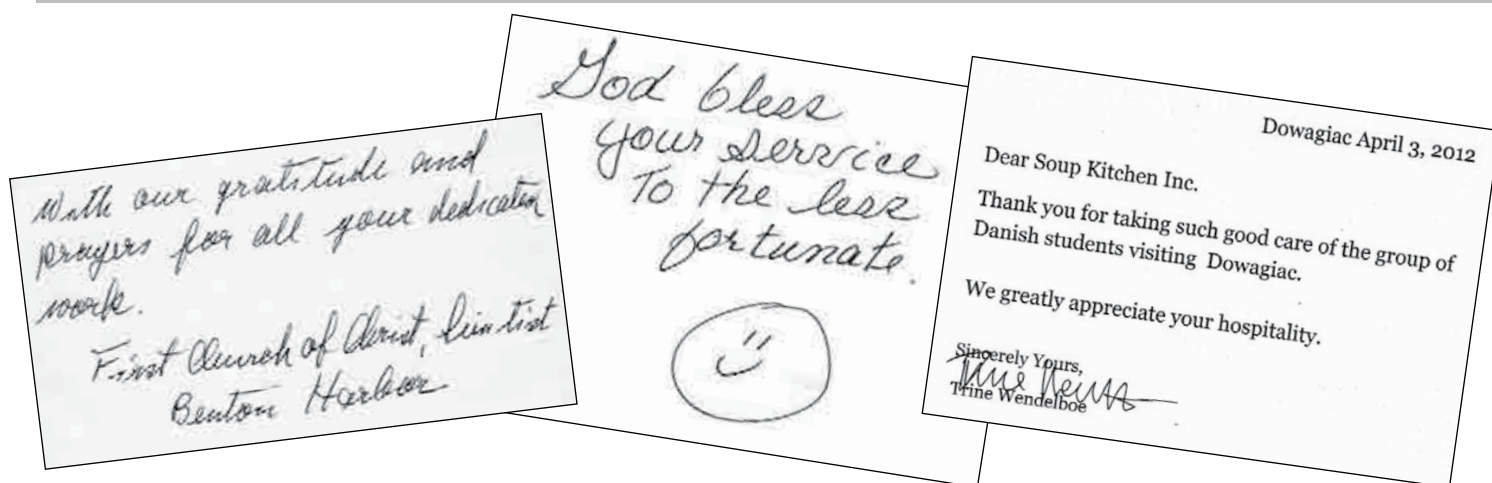 With our gratitude and
prayers for all your dedication
work.
First Church of Christ, Scientist
Benton Harbor
God bless
your service
To the less
fortunate.
Dowagiac April 3, 2012
Dear Soup Kitchen Inc.
Thank you for taking such good care of the group of
Danish students visiting Dowagiac.
We greatly appreciate your hospitality.
Sincerely Yours,
Trine Wendelboe